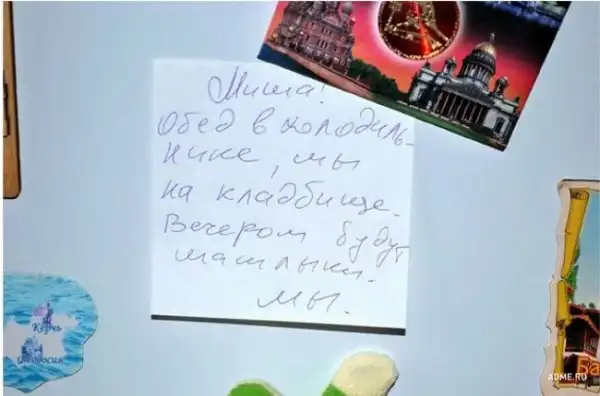 Миша!
Обед в холодиль-
нике, мы
на кладбище.
Вечером будут
шашлыки.
Мы.
Керчь
Феодосия
Ба
ADME.RU